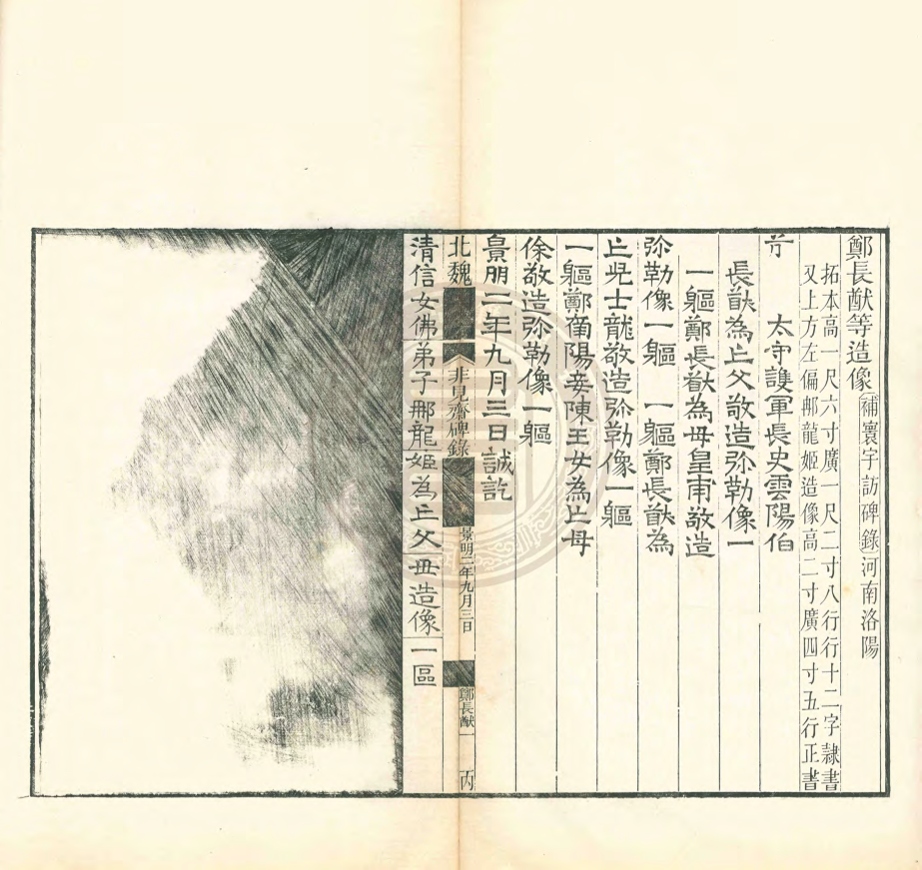 鄭長猷等造像 補寰宇訪碑錄 河南洛陽
拓本高一尺六寸廣一尺二寸八行行十二字隸書
又上方左偏邢龍姬造像高二寸廣四寸五行正書
太守護軍長史雲陽伯
長猷為亡父敬造弥勒像一
一軀鄭長猷為母皇甫敬造
弥勒像一軀 一軀鄭長猷為
亡兒士龍敬造弥勒像一軀
一軀鄭南陽妾陳王女為亡母
徐敬造弥勒像一軀
景明二年九月三日誠訖
北魏
非見齋碑錄
景明二年九月三日
鄭長猷一
丙
清信女佛弟子邢龍姬為亡父母造像一區